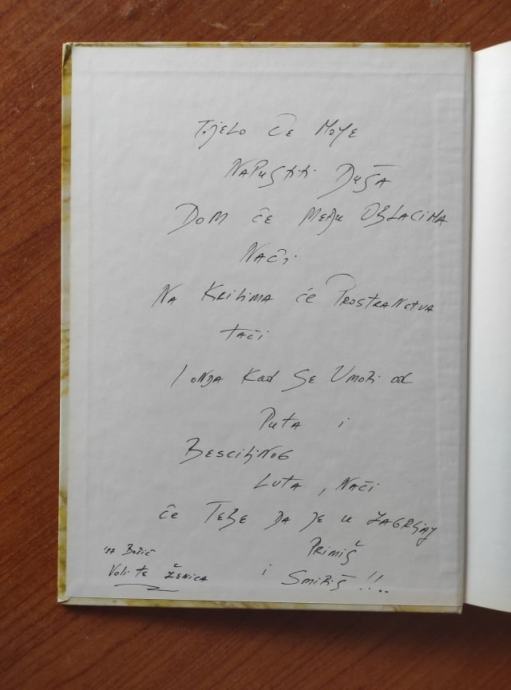 Tijelo će Moje
Napustiti Duša
Dom će među Oblacima
Naći
Na Krilima će Prostranstva
taći
I onda kad se Umori od
Puta i
Besciljnog
Luta, Naći
će Tebe da je u zagrljaj
Primiš
i Smiriš !!..
Božić
Voli te Ženica